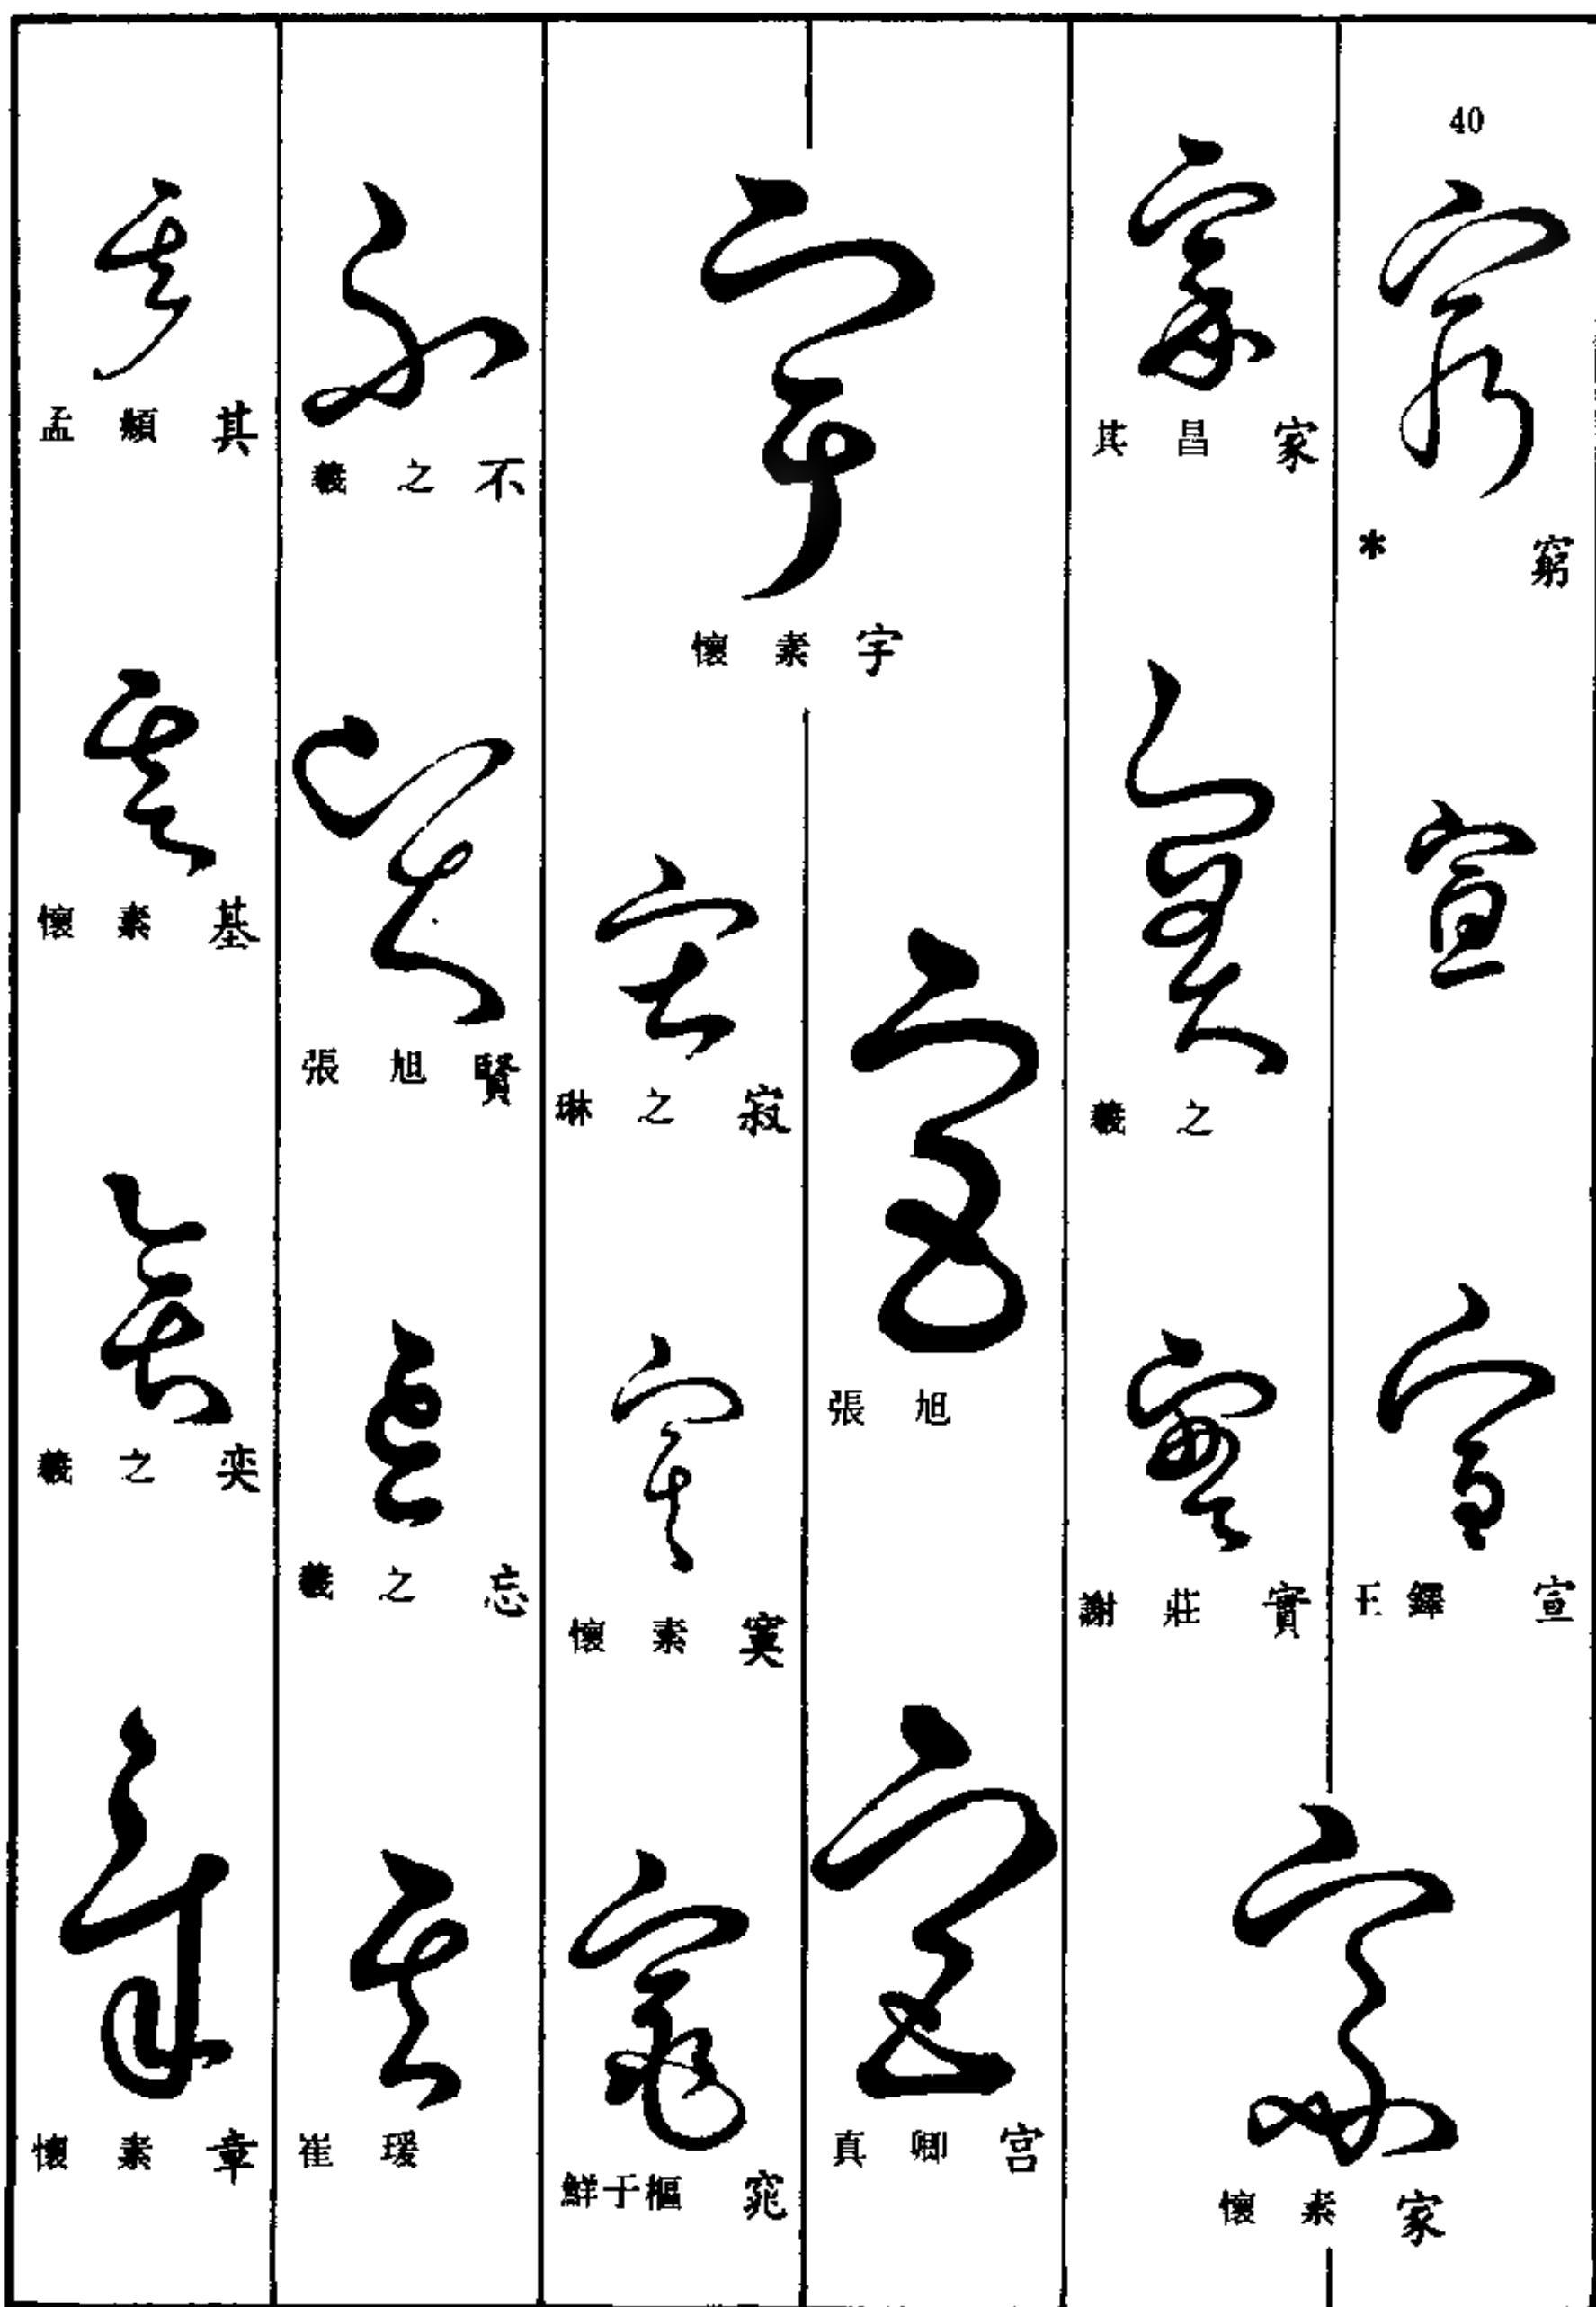 40
* 窮
王鐸 宣
懷素 家
其昌 家
羲之
謝莊 實
懷素 宇
張旭
真卿 宫
琳之 寂
懷素 寞
鮮于樞 窕
羲之 不
張旭 賢
羲之 忘
崔瑗
孟頫 其
懷素 基
羲之 奕
懷素 章